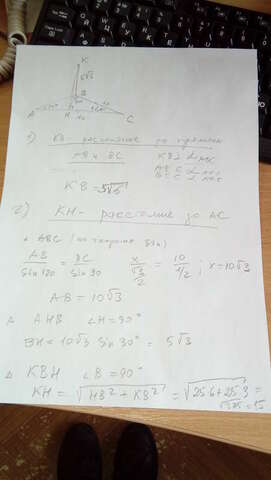 K
5√6
B
A
H
C
1) KB расстояние до прямых
AB и BC
KB ⊥ ABC
KB = 5√6
2) KH - расстояние до AC
Δ ABC (по теореме sin)
AB / Sin 120 = BC / Sin 30
x / (√3/2) = 10 / (1/2) ; x = 10√3
AB = 10√3
Δ AHB ∠H = 90°
BH = 10√3 Sin 30° = 5√3
Δ KBH ∠B = 90°
KH = √(HB² + KB²) = √(25·6 + 25·3) =
= 15